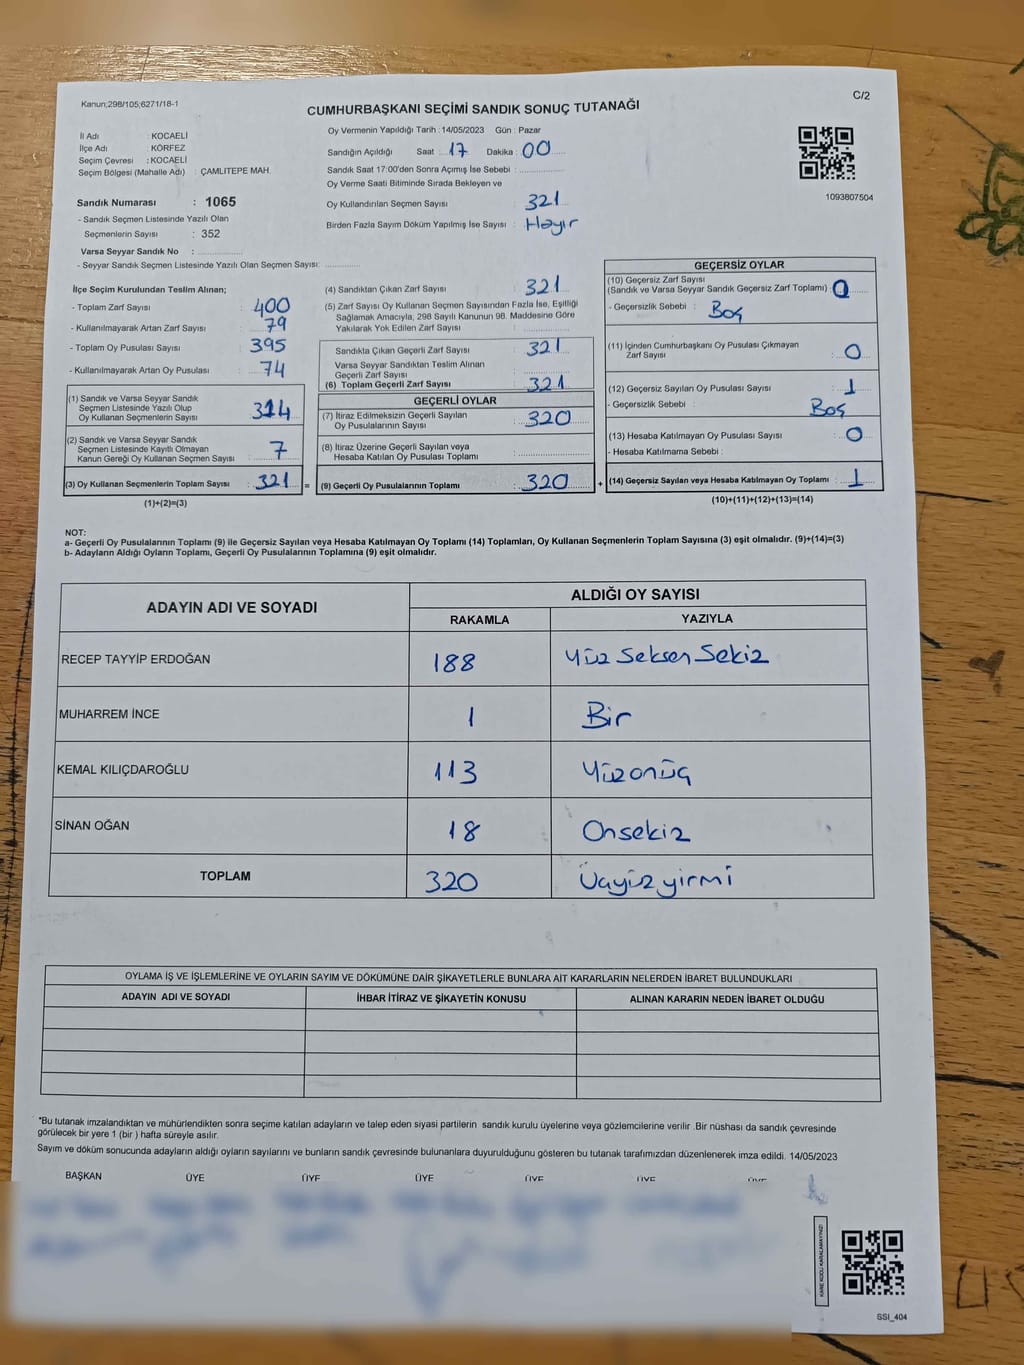 Kanun;298/105;6271/18-1
C/2
CUMHURBAŞKANI SEÇİMİ SANDIK SONUÇ TUTANAĞI
İl Adı : KOCAELİ
İlçe Adı : KÖRFEZ
Seçim Çevresi : KOCAELİ
Seçim Bölgesi (Mahalle Adı) : ÇAMLITEPE MAH.
Sandık Numarası : 1065
- Sandık Seçmen Listesinde Yazılı Olan
Seçmenlerin Sayısı : 352
Varsa Seyyar Sandık No :
- Seyyar Sandık Seçmen Listesinde Yazılı Olan Seçmen Sayısı:
Oy Vermenin Yapıldığı Tarih : 14/05/2023 Gün : Pazar
Sandığın Açıldığı Saat : 17 Dakika : 00
Sandık Saat 17:00'den Sonra Açımış İse Sebebi :
Oy Verme Saati Bitiminde Sırada Bekleyen ve
Oy Kullandırılan Seçmen Sayısı : 321
Birden Fazla Sayım Döküm Yapılmış İse Sayısı : Hayır
1093807504
İlçe Seçim Kurulundan Teslim Alınan;
- Toplam Zarf Sayısı : 400
- Kullanılmayarak Artan Zarf Sayısı : 79
- Toplam Oy Pusulası Sayısı : 395
- Kullanılmayarak Artan Oy Pusulası : 74
(1) Sandık ve Varsa Seyyar Sandık
Seçmen Listesinde Yazılı Olup
Oy Kullanan Seçmenlerin Sayısı : 314
(2) Sandık ve Varsa Seyyar Sandık
Seçmen Listesinde Kayıtlı Olmayan
Kanun Gereği Oy Kullanan Seçmen Sayısı : 7
(3) Oy Kullanan Seçmenlerin Toplam Sayısı : 321
(1)+(2)=(3)
(4) Sandıktan Çıkan Zarf Sayısı : 321
(5) Zarf Sayısı Oy Kullanan Seçmen Sayısından Fazla İse, Eşitliği
Sağlamak Amacıyla, 298 Sayılı Kanunun 98. Maddesine Göre
Yakılarak Yok Edilen Zarf Sayısı :
Sandıkta Çıkan Geçerli Zarf Sayısı : 321
Varsa Seyyar Sandıktan Teslim Alınan
Geçerli Zarf Sayısı :
(6) Toplam Geçerli Zarf Sayısı : 321
GEÇERLİ OYLAR
(7) İtiraz Edilmeksizin Geçerli Sayılan
Oy Pusulalarının Sayısı : 320
(8) İtiraz Üzerine Geçerli Sayılan veya
Hesaba Katılan Oy Pusulası Toplamı :
= (9) Geçerli Oy Pusulalarının Toplamı : 320
GEÇERSİZ OYLAR
(10) Geçersiz Zarf Sayısı
(Sandık ve Varsa Seyyar Sandık Geçersiz Zarf Toplamı) : 0
- Geçersizlik Sebebi : Boş
(11) İçinden Cumhurbaşkanı Oy Pusulası Çıkmayan
Zarf Sayısı : 0
(12) Geçersiz Sayılan Oy Pusulası Sayısı : 1
- Geçersizlik Sebebi : Boş
(13) Hesaba Katılmayan Oy Pusulası Sayısı : 0
- Hesaba Katılmama Sebebi :
+ (14) Geçersiz Sayılan veya Hesaba Katılmayan Oy Toplamı : 1
(10)+(11)+(12)+(13)=(14)
NOT:
a- Geçerli Oy Pusulalarının Toplamı (9) ile Geçersiz Sayılan veya Hesaba Katılmayan Oy Toplamı (14) Toplamları, Oy Kullanan Seçmenlerin Toplam Sayısına (3) eşit olmalıdır. (9)+(14)=(3)
b- Adayların Aldığı Oyların Toplamı, Geçerli Oy Pusulalarının Toplamına (9) eşit olmalıdır.
ADAYIN ADI VE SOYADI ALDIĞI OY SAYISI
RAKAMLA YAZIYLA
RECEP TAYYİP ERDOĞAN 188 Yüz Seksen Sekiz
MUHARREM İNCE 1 Bir
KEMAL KILIÇDAROĞLU 113 Yüzonüç
SİNAN OĞAN 18 Onsekiz
TOPLAM 320 Üçyüzyirmi
OYLAMA İŞ VE İŞLEMLERİNE VE OYLARIN SAYIM VE DÖKÜMÜNE DAİR ŞİKAYETLERLE BUNLARA AİT KARARLARIN NELERDEN İBARET BULUNDUKLARI
ADAYIN ADI VE SOYADI İHBAR İTİRAZ VE ŞİKAYETİN KONUSU ALINAN KARARIN NEDEN İBARET OLDUĞU
*Bu tutanak imzalandıktan ve mühürlendikten sonra seçime katılan adayların ve talep eden siyasi partilerin sandık kurulu üyelerine veya gözlemcilerine verilir .Bir nüshası da sandık çevresinde
görülecek bir yere 1 (bir ) hafta süreyle asılır.
Sayım ve döküm sonucunda adayların aldığı oyların sayılarını ve bunların sandık çevresinde bulunanlara duyurulduğunu gösteren bu tutanak tarafımızdan düzenlenerek imza edildi. 14/05/2023
BAŞKAN ÜYE ÜYE ÜYE ÜYE ÜYE ÜYE
KARE KODU KARALAMAYINIZ!
SSI_404